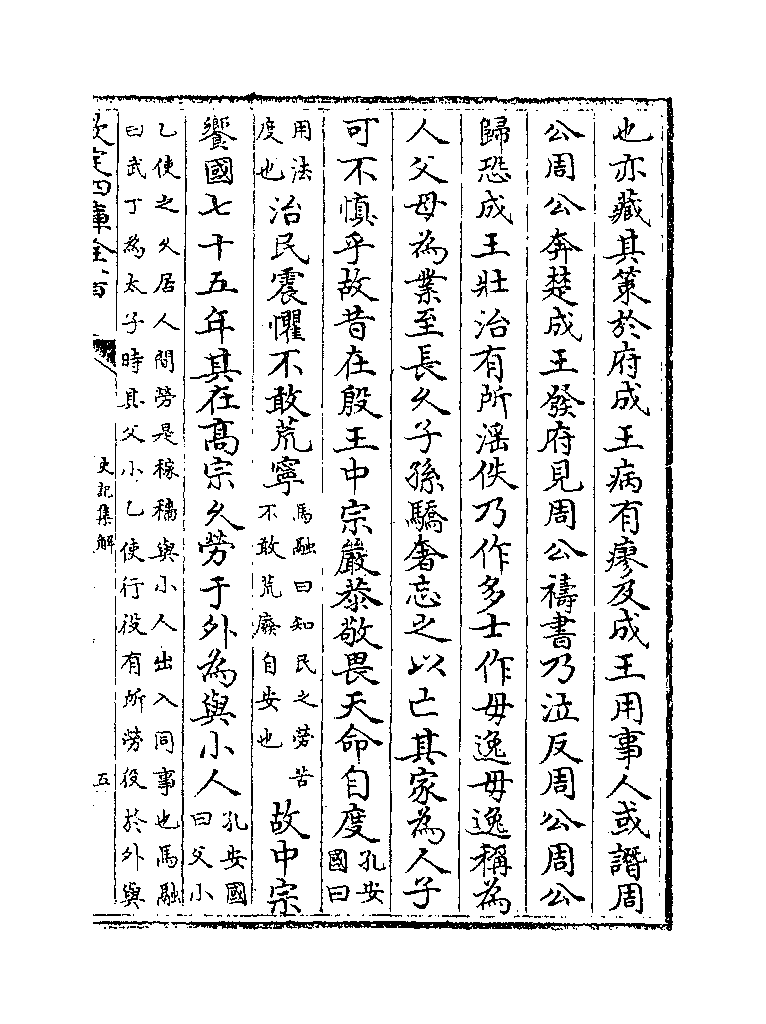 也亦藏其策於府成王病有瘳及成王用事人或譖周
公周公奔楚成王發府見周公禱書乃泣反周公周公
歸恐成王壯治有所滛佚乃作多士作毋逸毋逸稱為
人父母為業至長久子孫驕奢忘之以亡其家為人子
可不慎乎故昔在殷王中宗嚴恭敬畏天命自度
孔安
國曰
用法
度也
治民震懼不敢荒寧
馬融曰知民之勞苦
不敢荒廢自安也
故中宗
饗國七十五年其在高宗久勞于外為與小人
孔安國
曰父小
乙使之久居人間勞是稼穡與小人出入同事也馬融
曰武丁為太子時其父小乙使行役有所勞役於外與
欽定四庫全書
史記集解
五